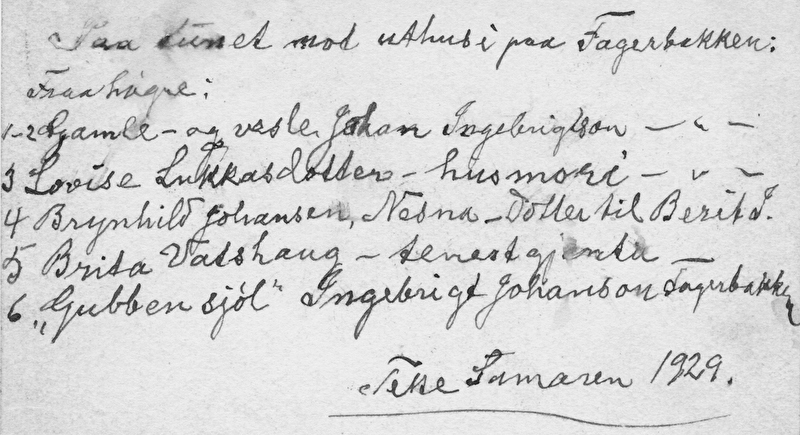 Paa tunet mod uthusi paa Fagerbakken:
Fraa högre:
1-2 Gamle - og vesle Johan Ingebrigtson — " —
3 Lovise Lukkasdotter - husmori - " -
4 Brynhild Johansen, Nesna - Dotter til Berit I.
5 Brita Vatshaug - tenestgjenta —
6 "Gubben sjól" Ingebrigt Johanson Fagerbakken
Sumaren 1929.